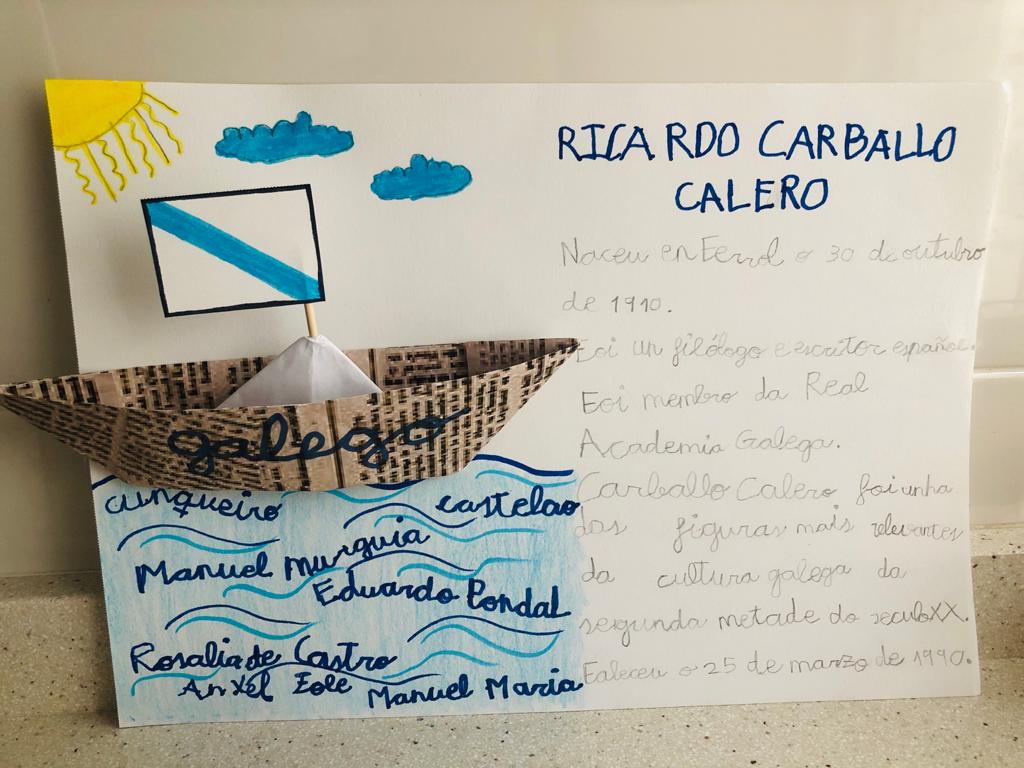 RICARDO CARBALLO
CALERO
Naceu en Ferrol o 30 de outubro
de 1910.
Foi un filólogo e escritor español.
Foi membro da Real
Academia Galega.
Carballo Calero foi unha
das figuras mais relevantes
da cultura galega da
segunda metade do seculo XX.
Faleceu o 25 de marzo de 1990.
galego
cunqueiro castelao
Manuel Murguia
Eduardo Pondal
Rosalia de Castro
Anxel Fole Manuel Maria